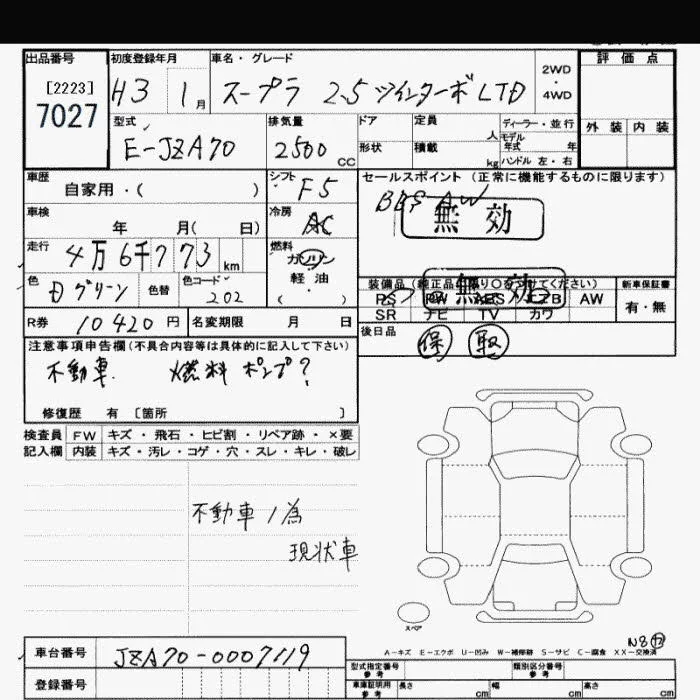 出品番号
[2223]
7027
初度登録年月
H3 1月
車名・グレード
スープラ 2.5 ツインターボ LTD
2WD
・
4WD
評価点
外装 内装
型式
E-JZA70
排気量
2500 CC
ドア
形状
定員 人
積載 kg
ディーラー・並行
モデル年式 年
ハンドル 左・右
車歴
自家用・( )
シフト
F5
車検
年 月( 日)
冷房
AC
走行
4万6千773 km
燃料
ガソリン
軽油
( )
色
Dグリーン
色替
色コード
202
セールスポイント(正常に機能するものに限ります)
BBS AW
無効
装備品(純正品に限り○をつけてください)
無効
PS PW ABS エアB AW
SR ナビ TV カワ
新車保証書
有・無
R券 10420円
名変期限 月 日
後日品
保 取
注意事項申告欄(不具合内容等は具体的に記入して下さい)
不動車. 燃料ポンプ?
修復歴 有 [箇所 ]
検査員 FW キズ・飛石・ヒビ割・リペア跡・×要
記入欄 内装 キズ・汚レ・コゲ・穴・スレ・キレ・破レ
不動車ノ為
現状車
スペア
N8⑰
A-キズ E-エクボ U-凹み W-補修跡 S-サビ C-腐食 XX-交換済
車台番号 JZA70-0007119
登録番号
型式指定番号
参考
類別区分番号
参考
車庫証明用
参考
長さ cm 幅 cm 高さ cm